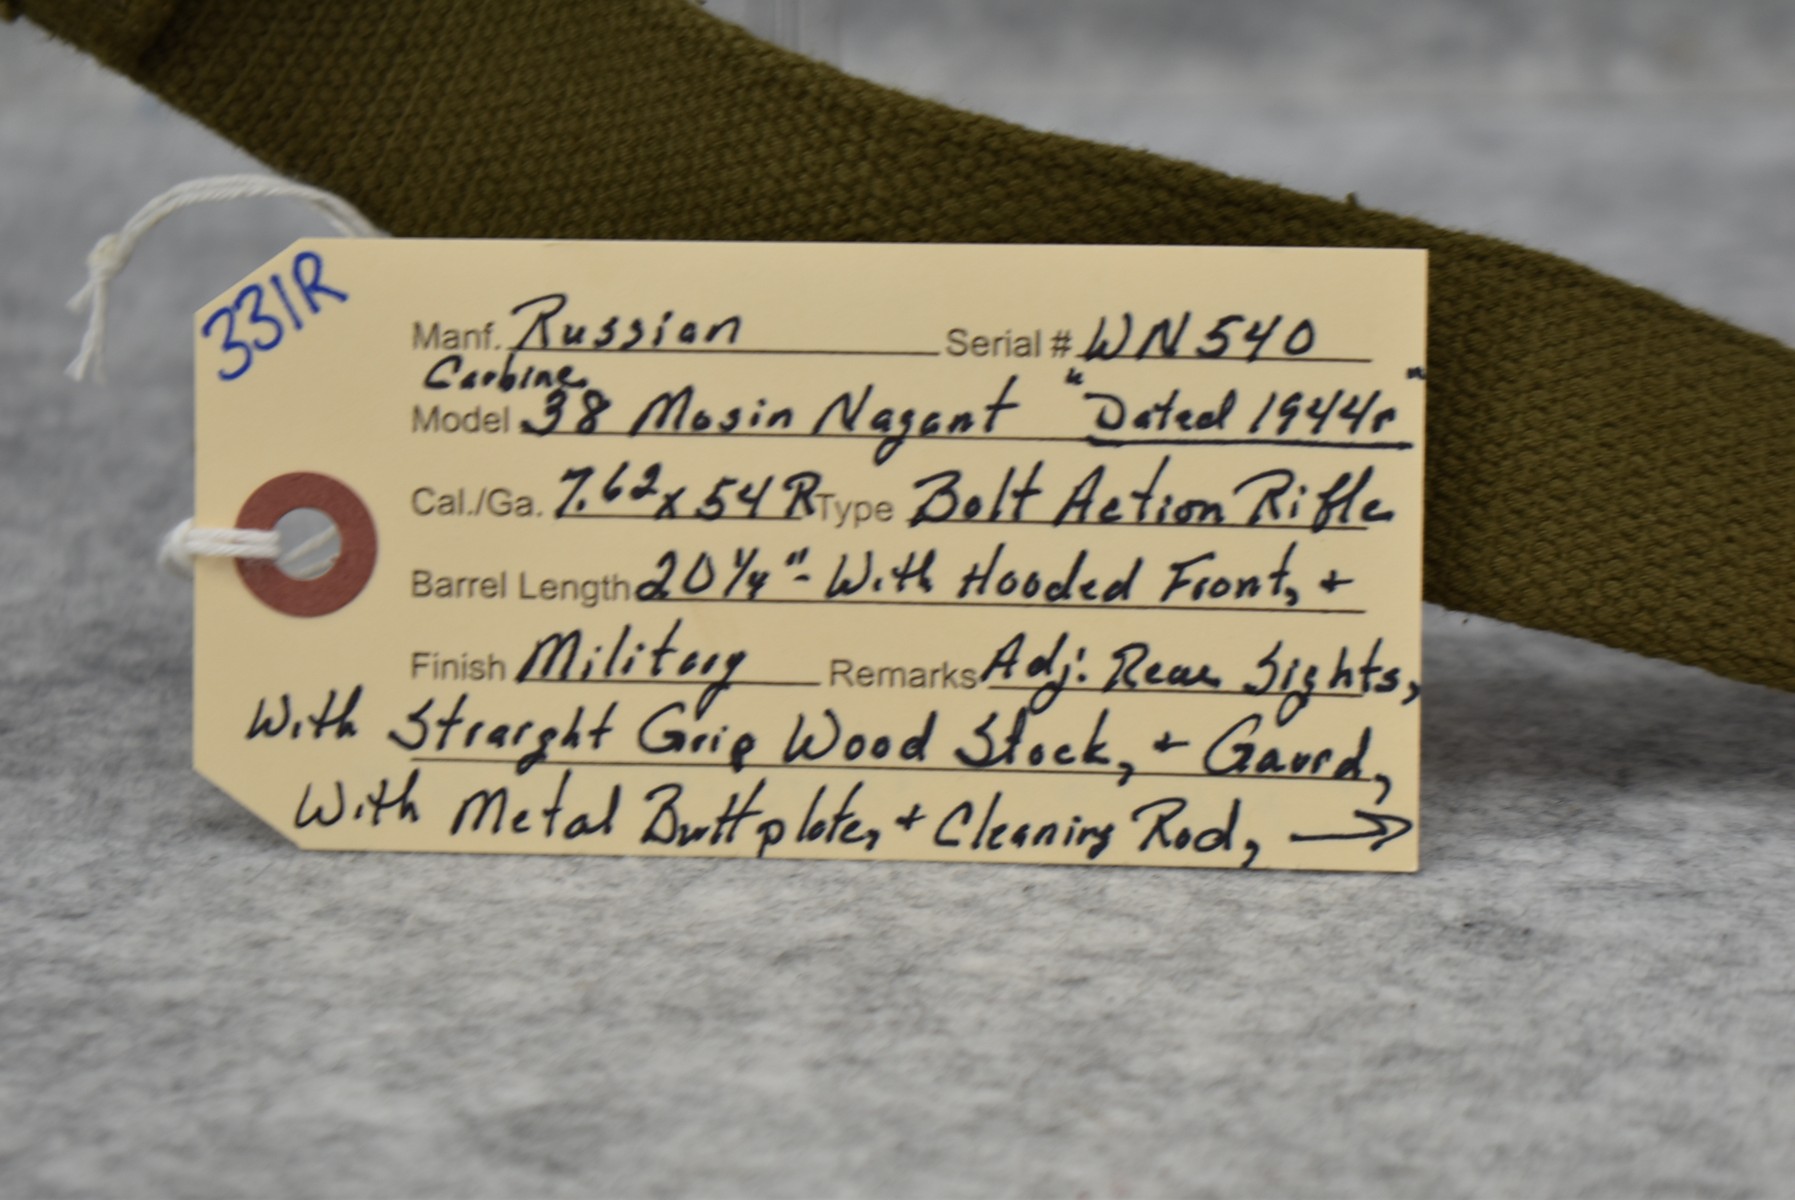 331R
Manf. Russian Serial # WN540
Carbine
Model 38 Mosin Nagant "Dated 1944r"
Cal./Ga. 7.62x54R Type Bolt Action Rifle
Barrel Length 20 1/4"- With Hooded Front, +
Finish Military Remarks Adj. Rear Sights,
With Straight Grip Wood Stock, + Gaurd,
With Metal Buttplate, + Cleaning Rod, →